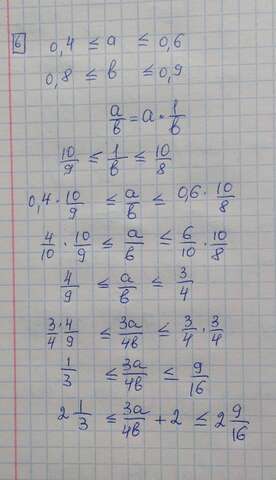 6 0,4 ≤ a ≤ 0,6
0,8 ≤ b ≤ 0,9
a/b = a · 1/b
10/9 ≤ 1/b ≤ 10/8
0,4 · 10/9 ≤ a/b ≤ 0,6 · 10/8
4/10 · 10/9 ≤ a/b ≤ 6/10 · 10/8
4/9 ≤ a/b ≤ 3/4
3/4 · 4/9 ≤ 3a/4b ≤ 3/4 · 3/4
1/3 ≤ 3a/4b ≤ 9/16
2 1/3 ≤ 3a/4b + 2 ≤ 2 9/16